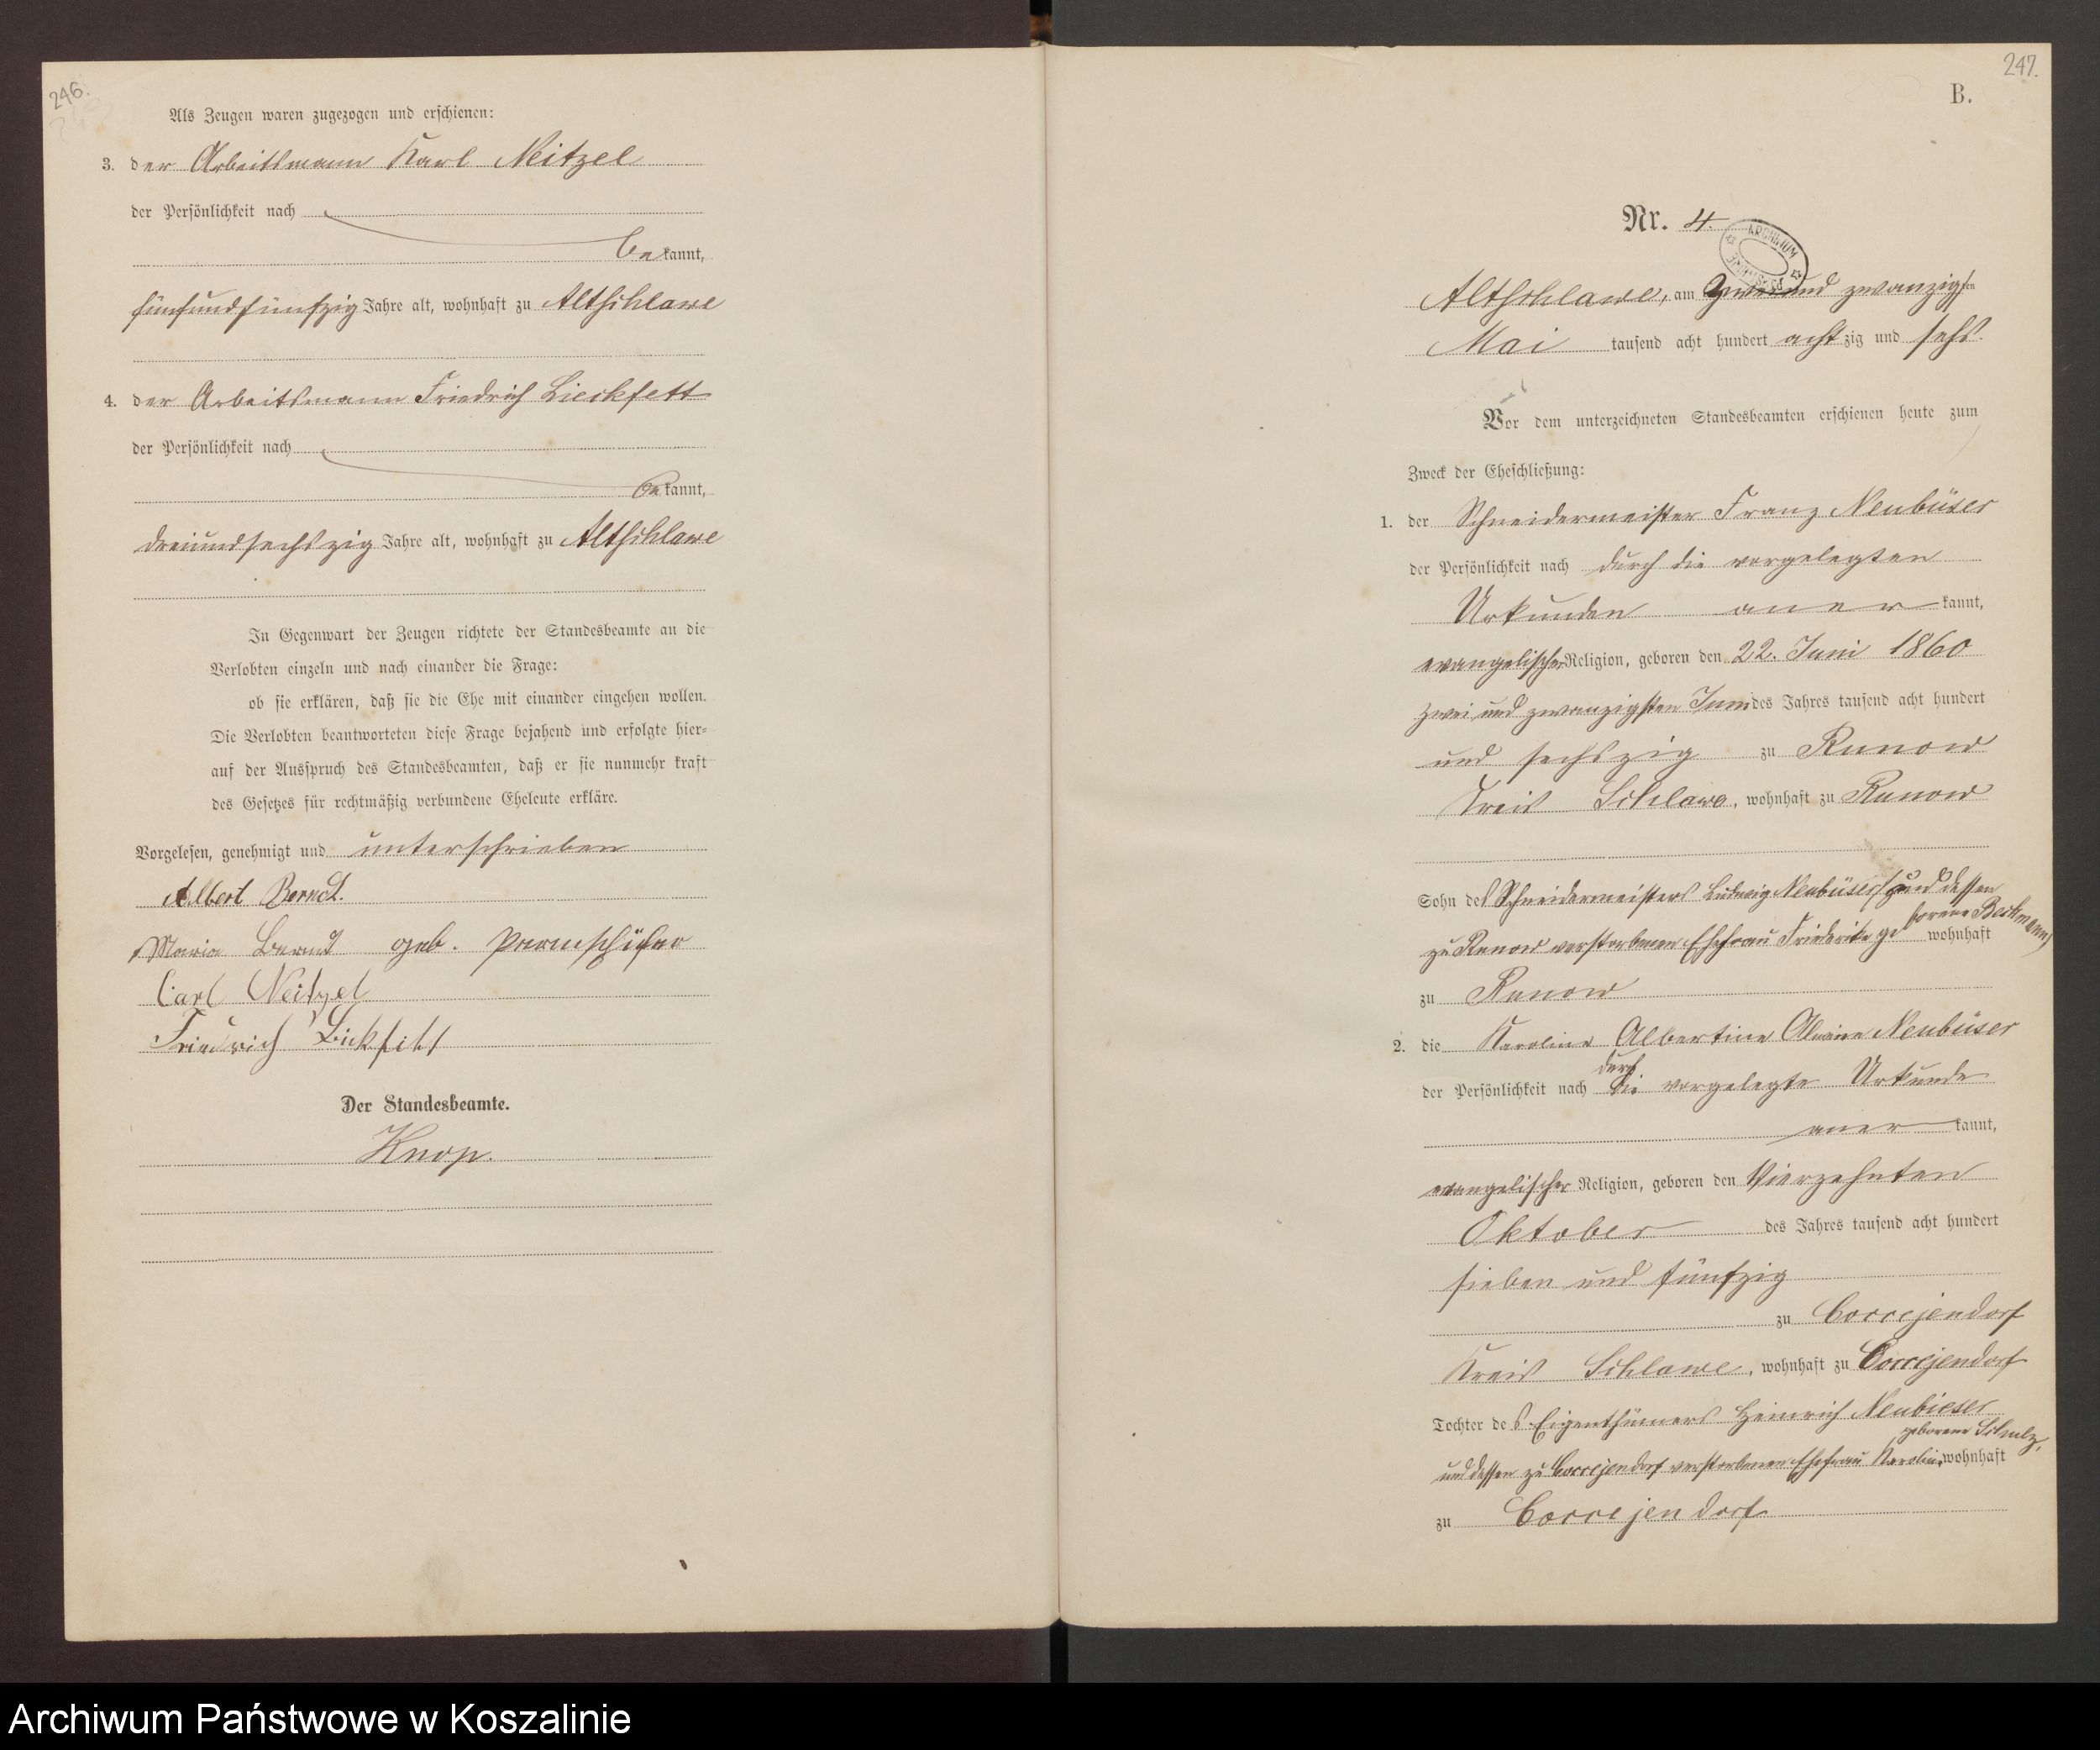 246.
Als Zeugen waren zugezogen und erschienen:
3. der Arbeitsmann Karl Neitzel
der Persönlichkeit nach
bekannt,
fünfundfünfzig Jahre alt, wohnhaft zu Altschlawe
4. der Arbeitsmann Friedrich Lieckfett
der Persönlichkeit nach
bekannt,
dreiundsechszig Jahre alt, wohnhaft zu Altschlawe
In Gegenwart der Zeugen richtete der Standesbeamte an die
Verlobten einzeln und nach einander die Frage:
ob sie erklären, daß sie die Ehe mit einander eingehen wollen.
Die Verlobten beantworteten diese Frage bejahend und erfolgte hier-
auf der Ausspruch des Standesbeamten, daß er sie nunmehr kraft
des Gesetzes für rechtmäßig verbundene Eheleute erkläre.
Vorgelesen, genehmigt und unterschrieben
Albert Berndt.
Maria Berndt geb.
Carl Neitzel
Friedrich
Der Standesbeamte.
Knop.
247.
B.
Nr. 4.
ARCHIWUM
Altschlawe, am zwei und zwanzigsten
Mai tausend acht hundert achtzig und sechs.
Vor dem unterzeichneten Standesbeamten erschienen heute zum
Zweck der Eheschließung:
1. der Schneidermeister Franz Neubüser
der Persönlichkeit nach durch die vorgelegten
Urkunden anerkannt,
evangelischer Religion, geboren den 22. Juni 1860
zwei und zwanzigsten Juni des Jahres tausend acht hundert
und sechszig zu Runow
Kreis Schlawe, wohnhaft zu Runow
Sohn des Schneidermeisters Ludwig Neubüser und dessen
zu Runow verstorbenen Ehefrau Friederike geborene Beckmann wohnhaft
zu Runow
2. die Karoline Albertine Neubüser
der Persönlichkeit nach durch die vorgelegte Urkunde
anerkannt,
evangelischer Religion, geboren den Vierzehnten
Oktober des Jahres tausend acht hundert
sieben und fünfzig
zu Coccejendorf
Kreis Schlawe, wohnhaft zu Coccejendorf
Tochter des Eigenthümers Heinrich Neubieser
und dessen zu Coccejendorf verstorbenen Ehefrau Karoline geborene Schulz, wohnhaft
zu Coccejendorf
Archiwum Państwowe w Koszalinie